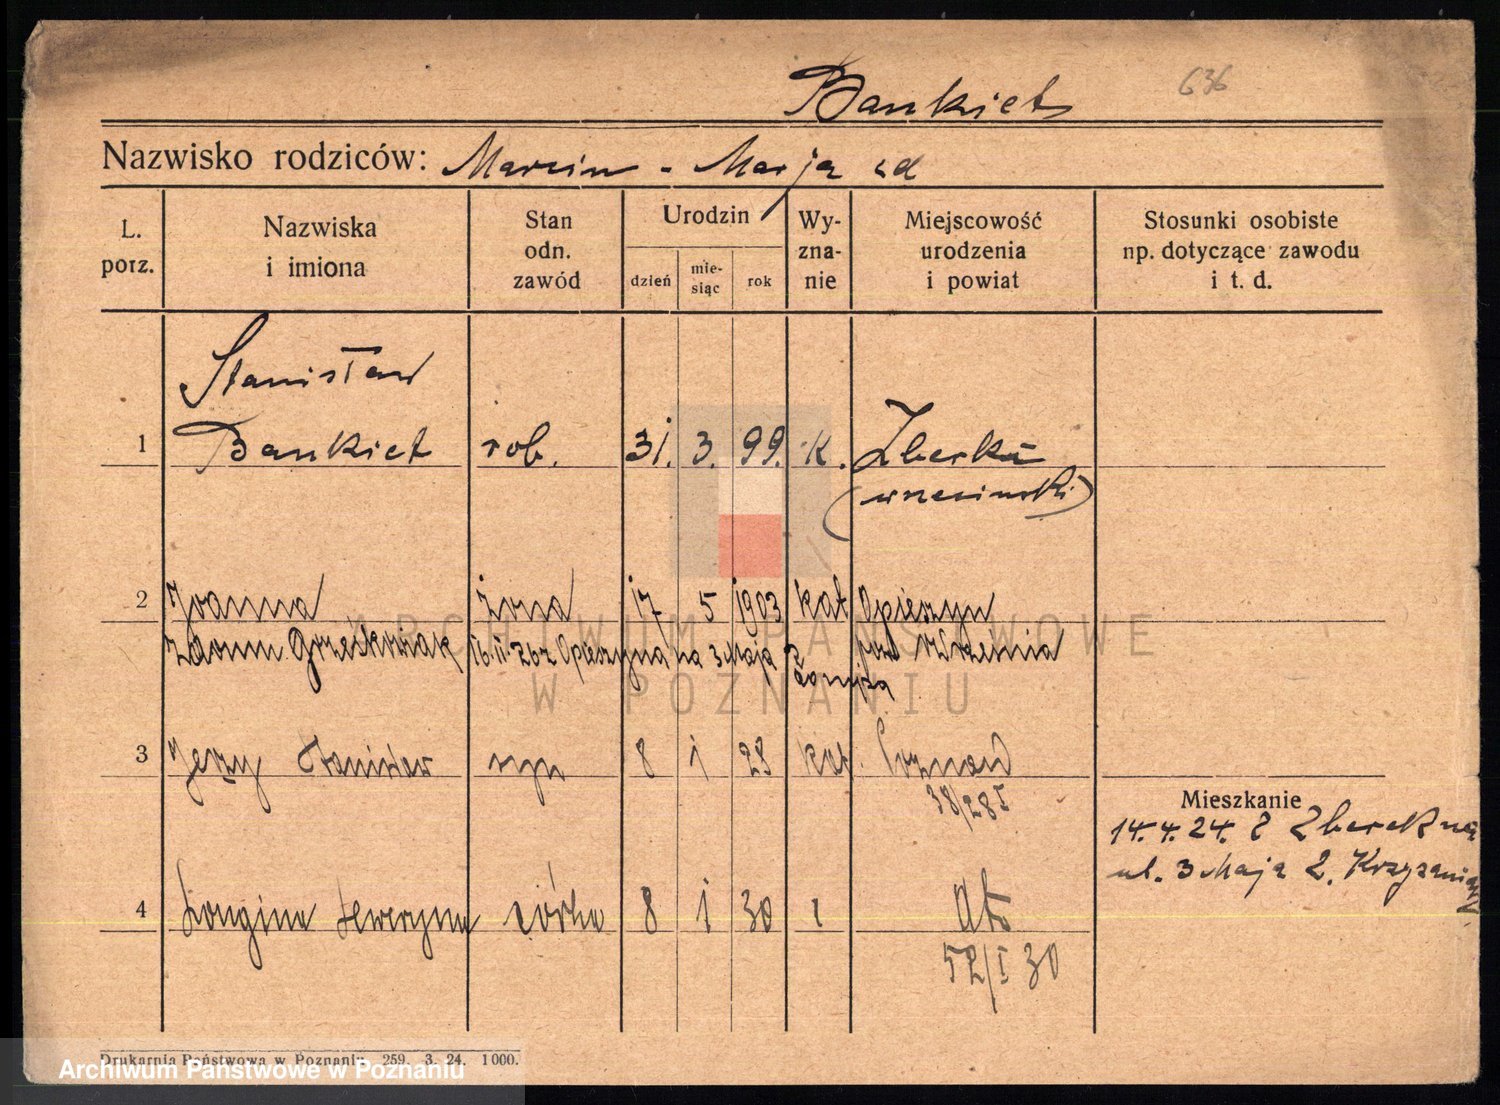 Bankiet 636
Nazwisko rodziców: Marcin - Marja
L. porz.
Nazwiska i imiona
Stan odn. zawód
Urodzin
dzień
mie-siąc
rok
Wy-zna-nie
Miejscowość urodzenia i powiat
Stosunki osobiste np. dotyczące zawodu i t. d.
Stanisław
1 Bankiet rob. 31. 3. 99. K. Zberka
(wrzesiński)
2 Joanna żona 17 5 1903 kat Opieszyn
zdomu Grześkowiak 16.II.26 z Opieszyna na 3 Maja 2 pow Września
ARCHIWUM PAŃSTWOWE
W POZNANIU
3 Jerzy Stanisław syn 8 1 28 kat. Poznań
38/28 I
Mieszkanie
14.4.24. z Zberek na
ul. 3 Maja 2. Krzyżaniak
4 Longina Seweryna córka 8 1 30
52/I 30
Drukarnia Państwowa w Poznaniu 259. 3. 24. 1000.
Archiwum Państwowe w Poznaniu